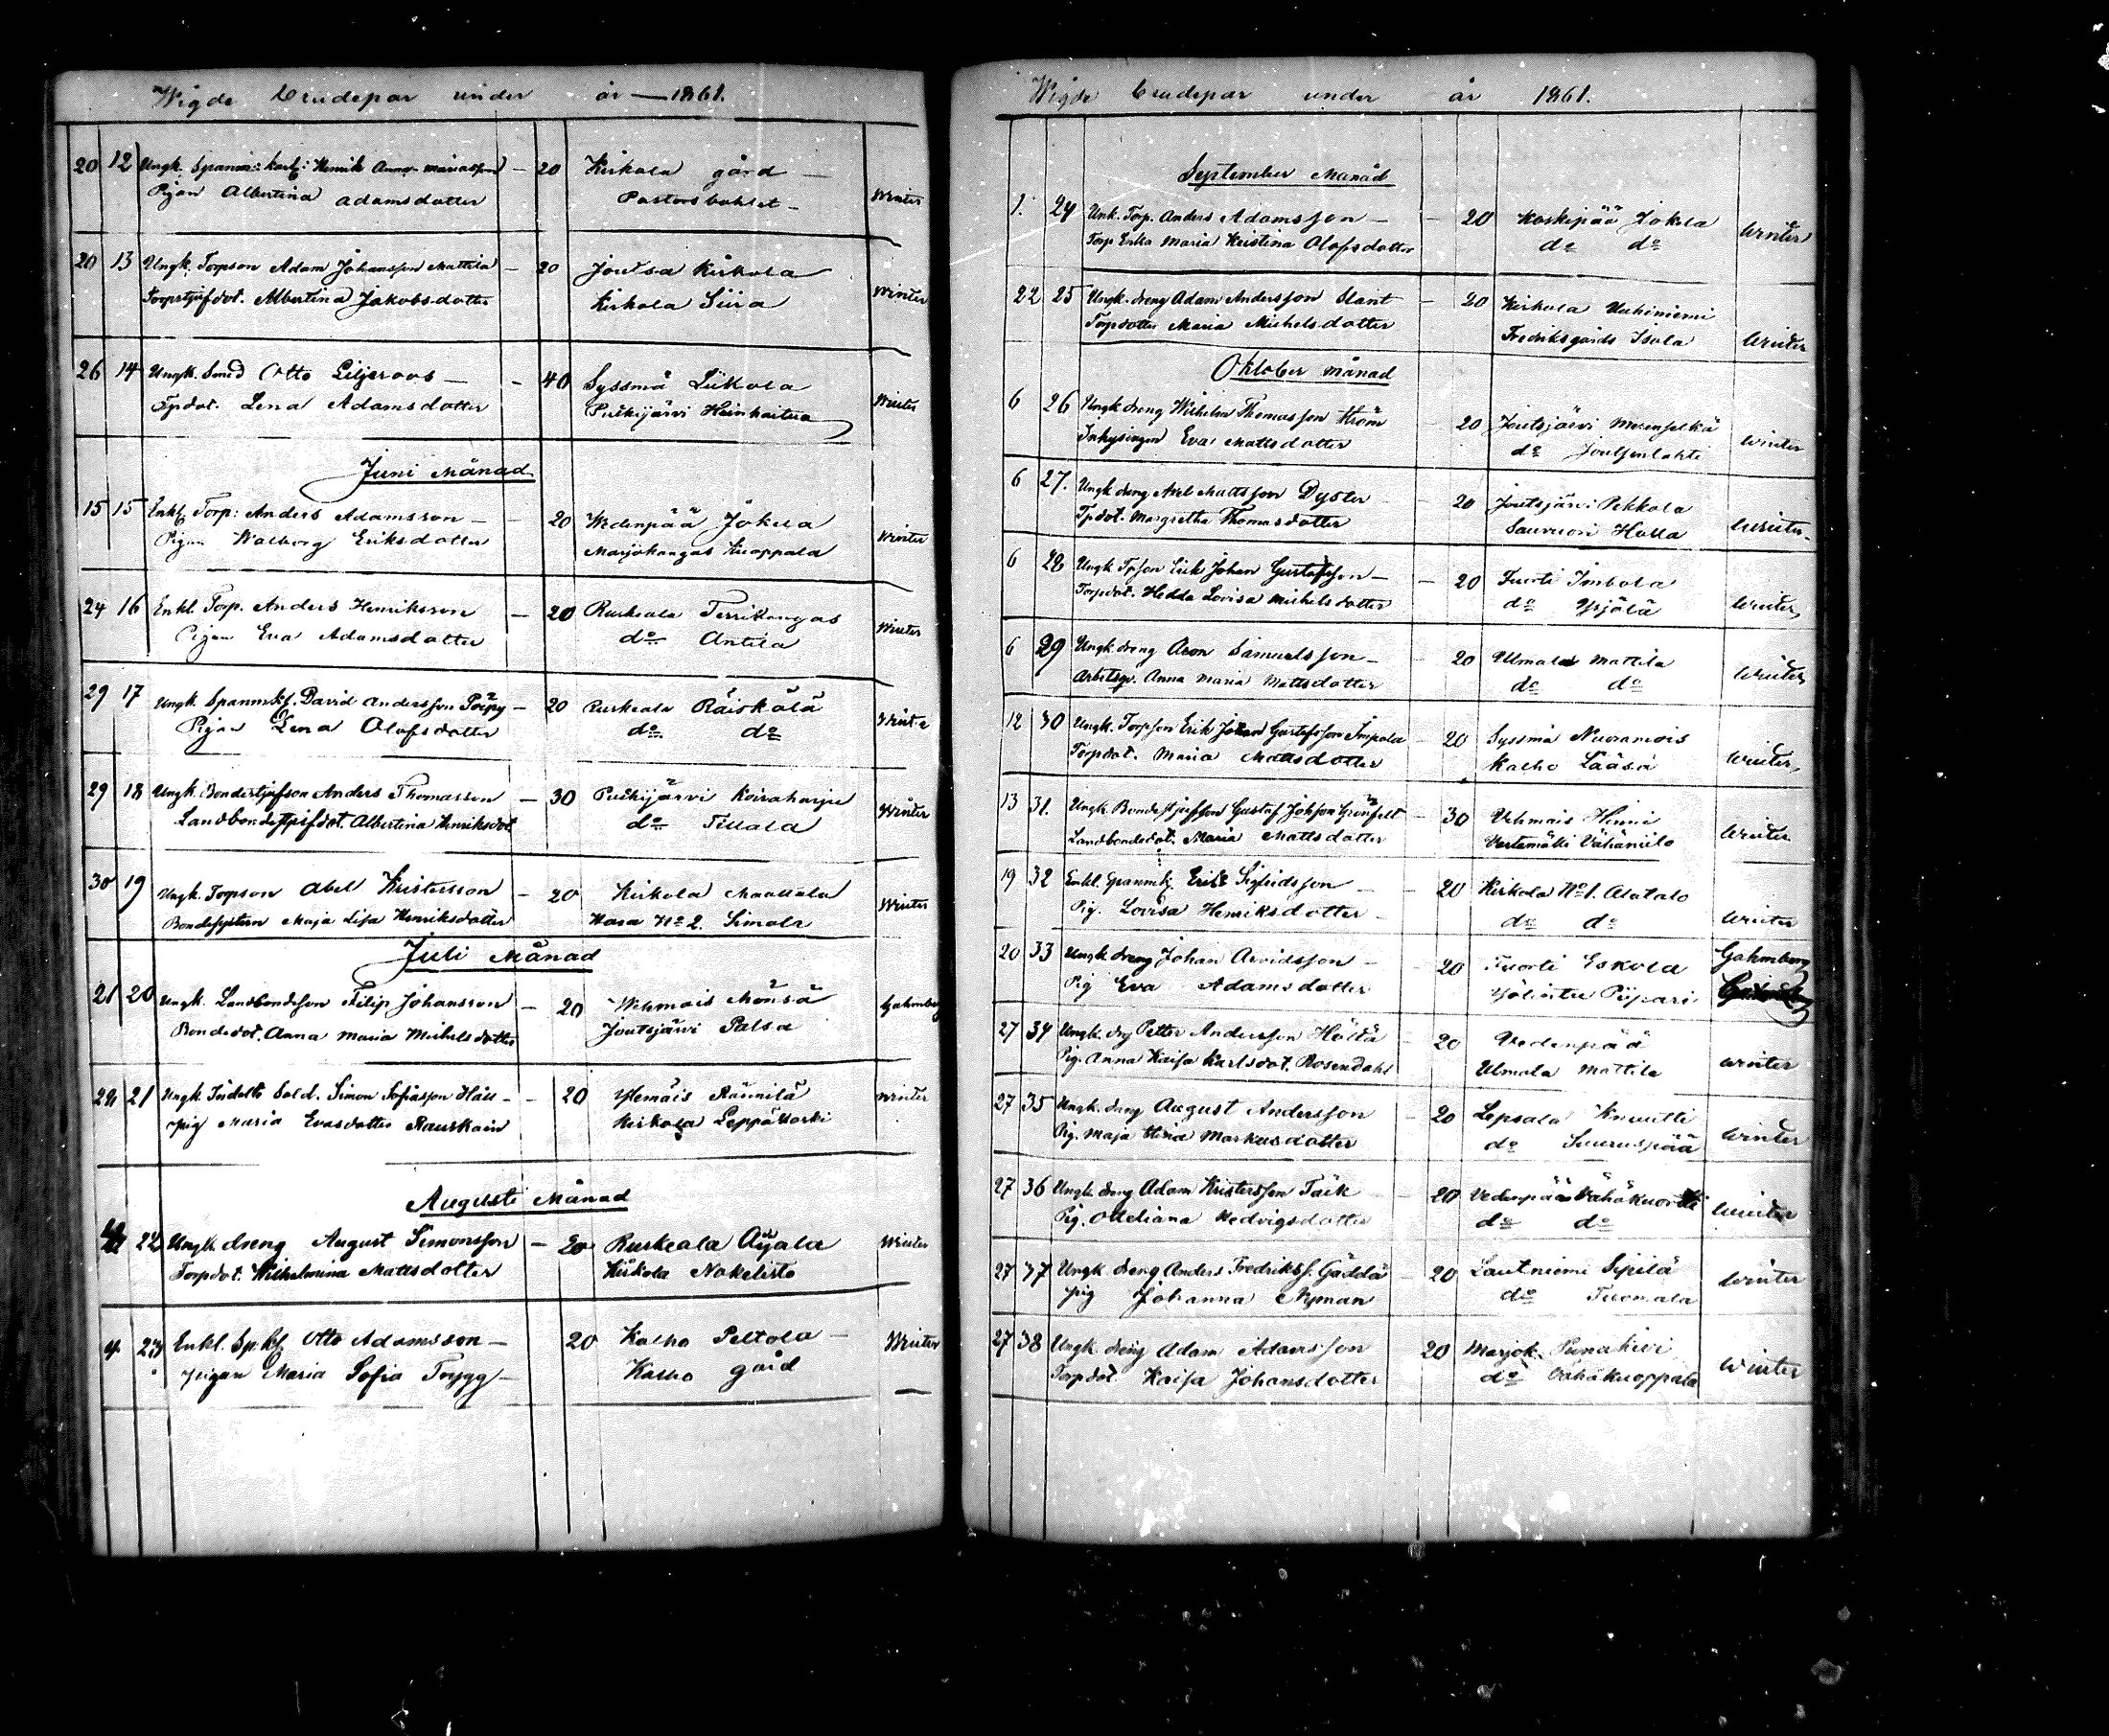 Wigde brudepar under år — 1861.
20 12 Ungk. Spanm: karl: Henrik Anna-mariasson — 20 Kirkola gård —
Pigan Albertina adamsdotter Pastorsbohlet — Winter
20 13 Ungk. Torpson Adam Johansson Mattila — 20 Joutsa Kirkola
Torpstjufdot. Albertina Jakobsdotter Kirkola Siira Winter
26 14 Ungk. Smed Otto Liljeroos — 40 Syssmä Liikola
Tpdot. Lena Adamsdotter Putkijärvi Heinkaitua Winter
Juni Månad
15 15 Enkl. Torp: Anders Adamsson — 20 Wedenpää Jokela
Pigan Walborg Eriksdotter Marjokangas Kuoppala Winter
24 16 Enkl. Torp. Anders Henriksson — 20 Ruskeala Terrikangas
Pigan Eva Adamsdotter do Antila Winter
29 17 Ungk. Spanmkl. David Andersson Pörpy — 20 Ruskeala Räiskälä
Pigan Lena Olofsdotter do do Winte
29 18 Ungk. Bondestjufson Anders Thomasson — 30 Putkijärvi Koiraharju
Landbondestjufdot. Albertina Henriksdot. do Tillala Winter
30 19 Ungk. Torpson Abel Kristersson — 20 Kirkola Maattala
Bondesystern Maja Lisa Henriksdotter Hara No 2. Simola Winter
Juli Månad
21 20 Ungk. Landbondeson Filip Johansson — 20 Wehmais Mönsä Gahmberg
Bondedot. Anna Maria Michelsdotter Joutsjärvi Palsa
28 21 Ungk. Indelte Sold. Simon Sofiasson Häll — 20 Ylemäis Räunilä Winter
pig Maria Evasdotter Rauskain Kirkola Leppäkorki
Augusti Månad
22 Ungk. dreng August Simonsson — 20 Ruskeala Ayala Winter
Torpdot. Wilhelmina Mattsdotter Kirkola Nokelisto
4 23 Enkl. Sp. kl. Otto Adamsson — 20 Kalho Peltola — Winter
pigan Maria Sofia Trygg — Kalho gård
Wigde brudepar under år 1861.
September Månad
1. 24 Unk. Torp. Anders Adamsson — 20 Koskipää Jokela
Torp Enka Maria Kristina Olofsdotter do do Winter
22 25 Ungk. dreng Adam Andersson Slant — 20 Kirkola Uuhiniemi
Torpdotter Maria Michelsdotter Fredriksgårds Isola Winter
Oktober månad
6 26 Ungk dreng Wilhelm Thomasson Ström 20 Joutsjärvi Merenselkä
Inhysingen Eva Mattsdotter do Joutsenlahti Winter
6 27. Ungk dreng Axel Mattsson Dyster 20 Joutsjärvi Pekkola
Tpdot. Margretha Thomasdotter Sauvuori Holla Winter
6 28 Ungk Tpson Erik Johan Gustafsson — 20 Tuorti Imbola
Torpdot. Hedda Lovisa Michelsdotter do Ypjölä Winter
6 29 Ungk dreng Aron Samuelsson — 20 Ulmala Mattila
Arbetsqv. Anna Maria Mattsdotter do do Winter
12 30 Ungk. Torpson Erik Johan Gustafsson Impola 20 Syssmä Nuoramois
Torpdot. Maria Mattsdotter Kalho Lääsä Winter
13 31. Ungk Bondestjufson Gustaf Johsson Grönfelt 30 Vehmais Hinni
Landbondedot. Maria Mattsdotter Vartamäki Vähäniilo Winter
19 32 Enkl. Spannmkj Erik Sigfridsson — 20 Kirkola No 1. Alatalo
Pig. Lovisa Henriksdotter do do Winter
20 33 Ungk dreng Johan Arvidsson — 20 Tuorti Eskola Gahmberg
Pig Eva Adamsdotter Jölintu Piipari
27 34 Ungk. drg Petter Andersson Höltä 20 Vedenpää
Pig. Anna Kaisa Karlsdot. Rosendahl Ulmala Mattila Winter
27 35 Ungk. dreng August Andersson 20 Lepsala Knuutti
Pig. Maja Stina Markusdotter do Suuruspää Winter
27 36 Ungk dreng Adam Kristersson Täck 20 Vedenpää Vähäkuortti
Pig. Otteliana Hedvigsdotter do do Winter
27 37 Ungk. dreng Anders Fredrikss. Gäddä 20 Lautniemi Sipilä
pig Johanna Nyman do Tuomala Winter
27 38 Ungk dreng Adam Adamsson 20 Marjok. Punakivi
Torpdot Kaisa Johansdotter do Vähäkuoppala Winter